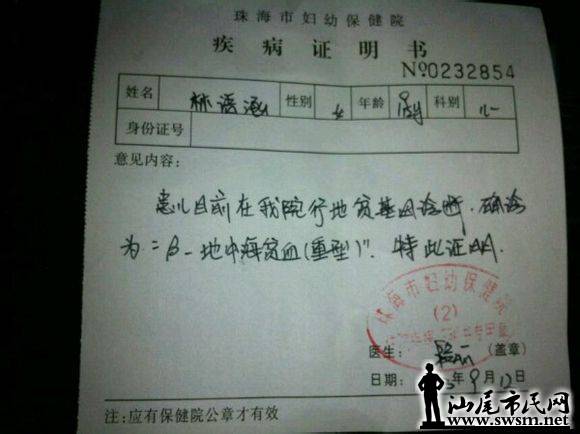 珠海市妇幼保健院
疾病证明书
No0232854
姓名 林语涵 性别 女 年龄 科别 儿
身份证号
意见内容:
患儿目前在我院行地贫基因诊断,确诊
为"β-地中海贫血(重型)"。特此证明.
珠海市妇幼保健院
(2)
医生: (盖章)
日期: 年9月12日
注:应有保健院公章才有效
汕尾市民网
www.swsm.net